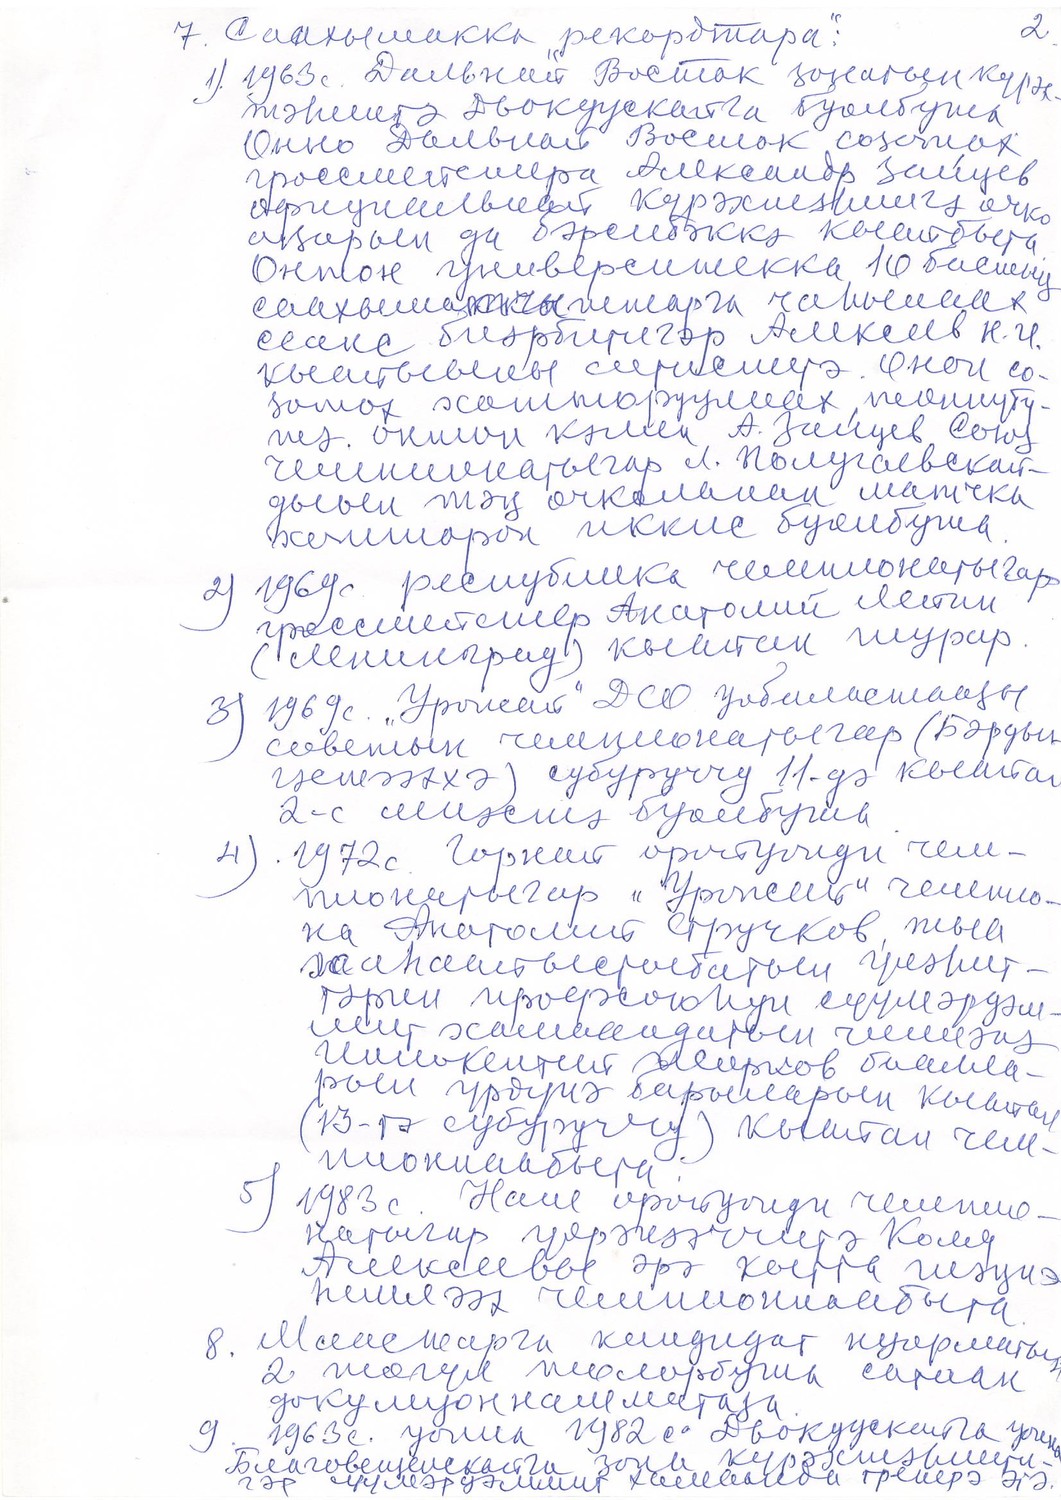 7. Саахымакка рекордтара": 2.
1). 1963 с. Дальнай Восток зонатын күрэх-
тэһиитэ Дьокуускайга буолбута
Онно Дальнай Восток соҕотох
гроссмейстера Александр Зайцев
официальнай күрэхтэһиигэ очко
аҥарын да бэрсибэккэ кыайбыта
Онтон университекка 10 бастыҥ
саахыматчыттарга чаһылаах
сеанс биэрбитигэр Алексеев Н.И.
кыайыыны ситиспитэ. Онон со-
ҕотох хотторуулаах
онтон кэлин А. Зайцев Союз
чемпионатыгар Л. Полугаевскай-
дыын тэҥ очколанан матчка
хотторон иккис буолбута.
2) 1969 с. республика чемпионатыгар
гроссмейстер Анатолий Лутин
(Ленинград) кыайан турар.
3) 1969 с. "Урожай" ДСО уобаластааҕы
советын чемпионатыгар (Бэрдьи-
гэстээххэ) субуруччу 11-дэ кыайан
2-с миэстэ буолбута
4). 1972 с. Горнай оройуонун чем-
пионатыгар "Урожай" чемпио-
на Анатолий Стручков, тыа
хаһаайыстыбатын үлэһит-
тэрин профсоюһун сүүмэрдэм-
мит хамаандатын чилиэнэ
Иннокентий Жирков биллэ-
рын үрдүнэ барыларын кыайан
(13-тэ субуруччу) кыайан чем-
пионнаабыта.
5) 1983 с. Нам оройуонун чемпио-
натыгар үөрэнээччитэ Коля
Алексеевы эрэ кытта
чемпионнаабыта.
8. Маастарга кандидат нуорматын
2 төгүл толорбута сатаан
докумуоннамматаҕа.
9. 1963 с. уонна 1982 с. Дьокуускайга уонна
Благовещенскайга зона күрэхтэһиити-
гэр сүүмэрдэммит хамаанда тренерэ этэ.